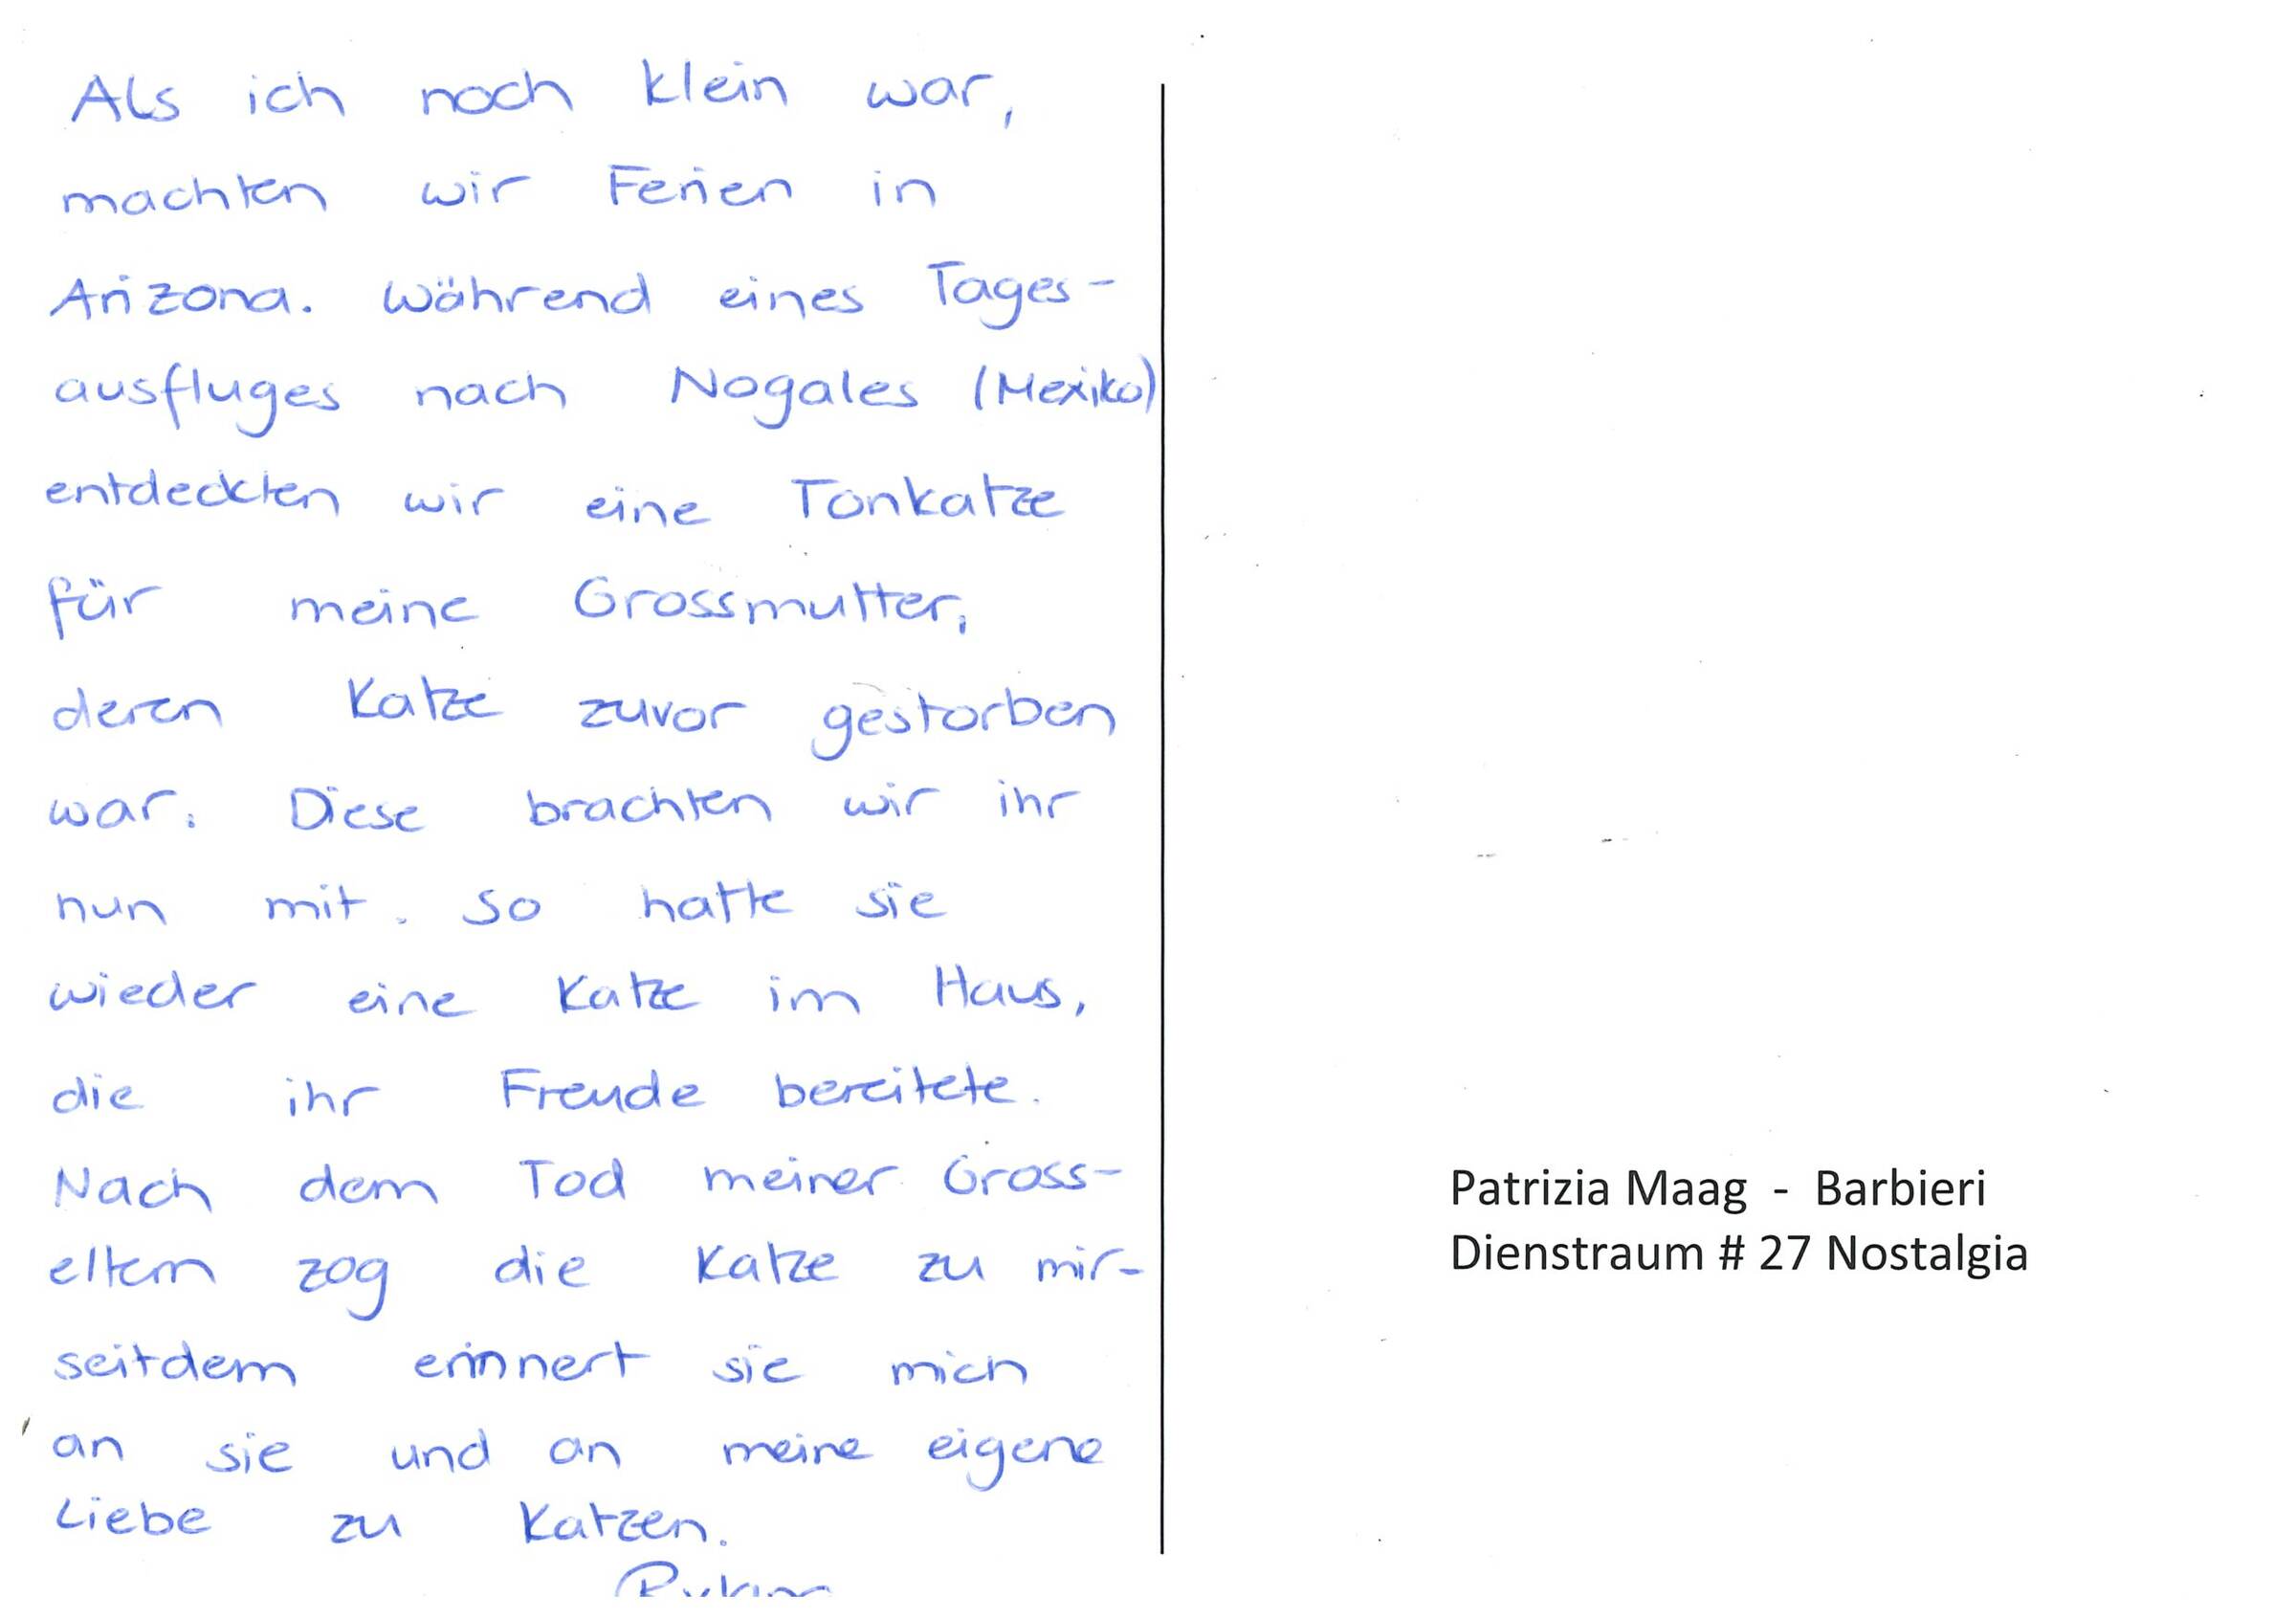 Als ich noch klein war,
machten wir Ferien in
Arizona. Während eines Tages-
ausfluges nach Nogales (Mexiko)
entdeckten wir eine Tonkatze
für meine Grossmutter,
deren Katze zuvor gestorben
war. Diese brachten wir ihr
nun mit. So hatte sie
wieder eine Katze im Haus,
die ihr Freude bereitete.
Nach dem Tod meiner Gross-
eltern zog die Katze zu mir-
seitdem erinnert sie mich
an sie und an meine eigene
Liebe zu Katzen.
Patrizia Maag - Barbieri
Dienstraum # 27 Nostalgia